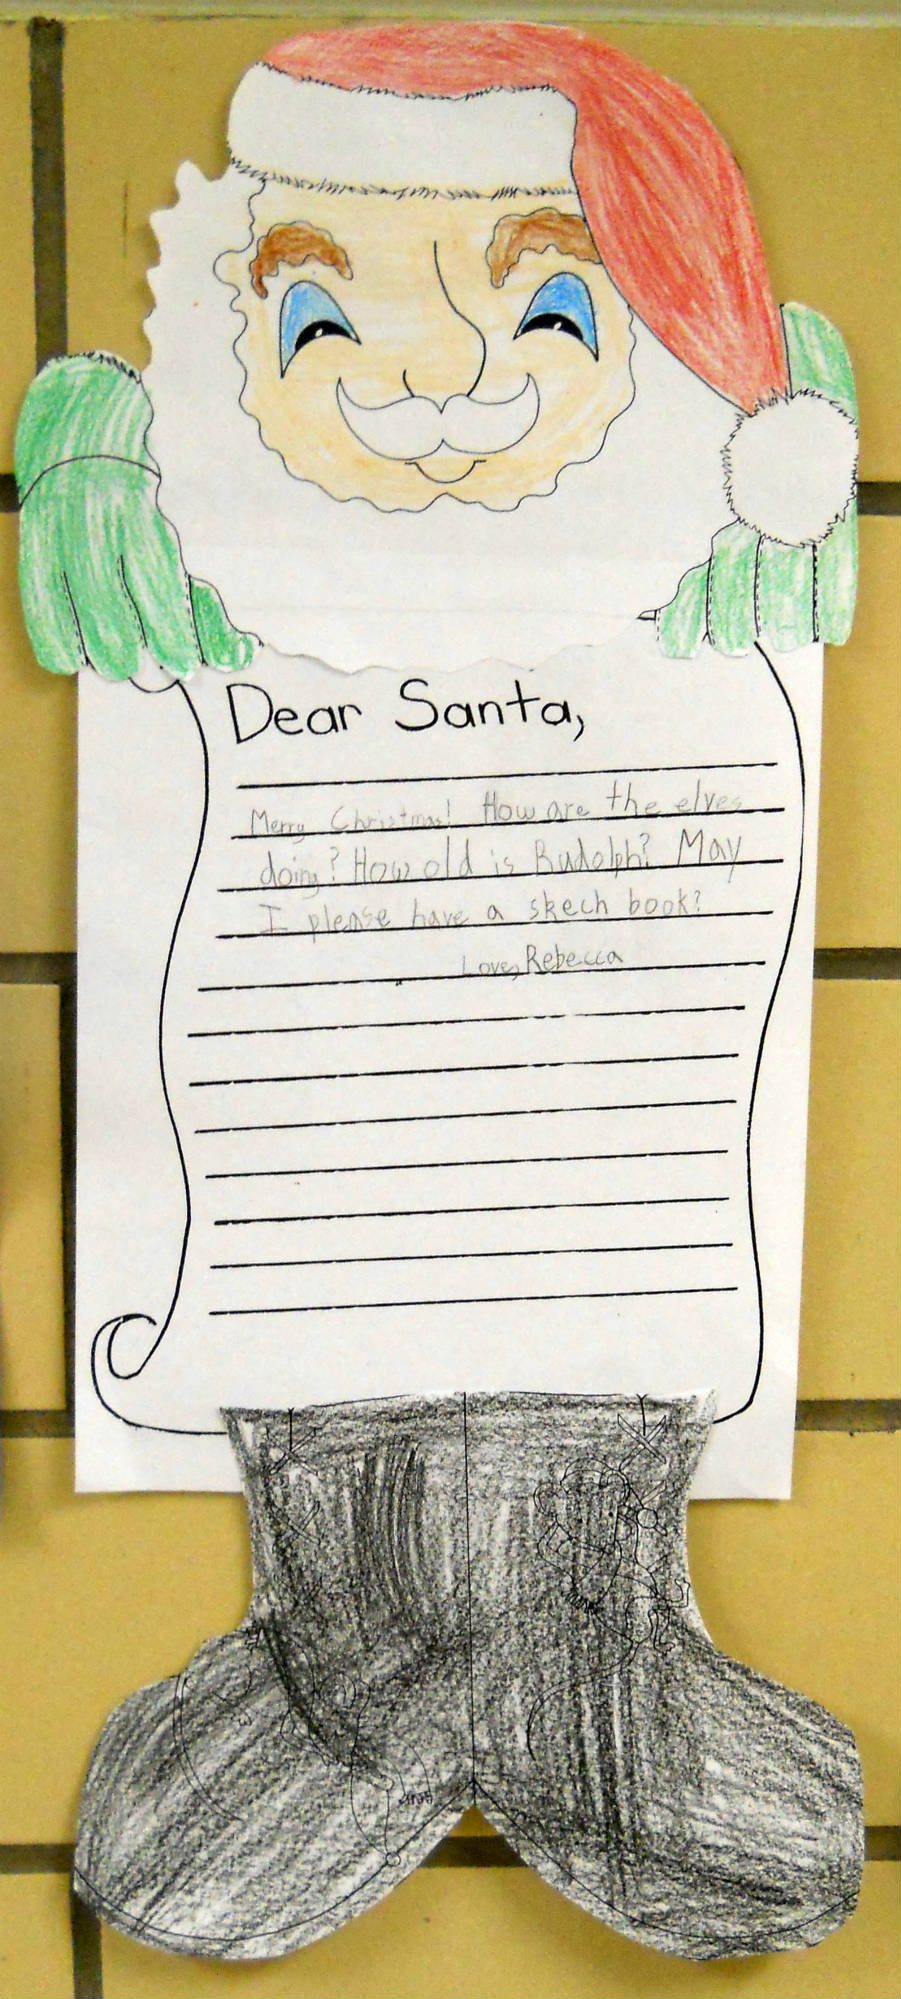 Dear Santa,
Merry Christmas! How are the elves
doing? How old is Rudolph? May
I please have a skech book?
Love, Rebecca